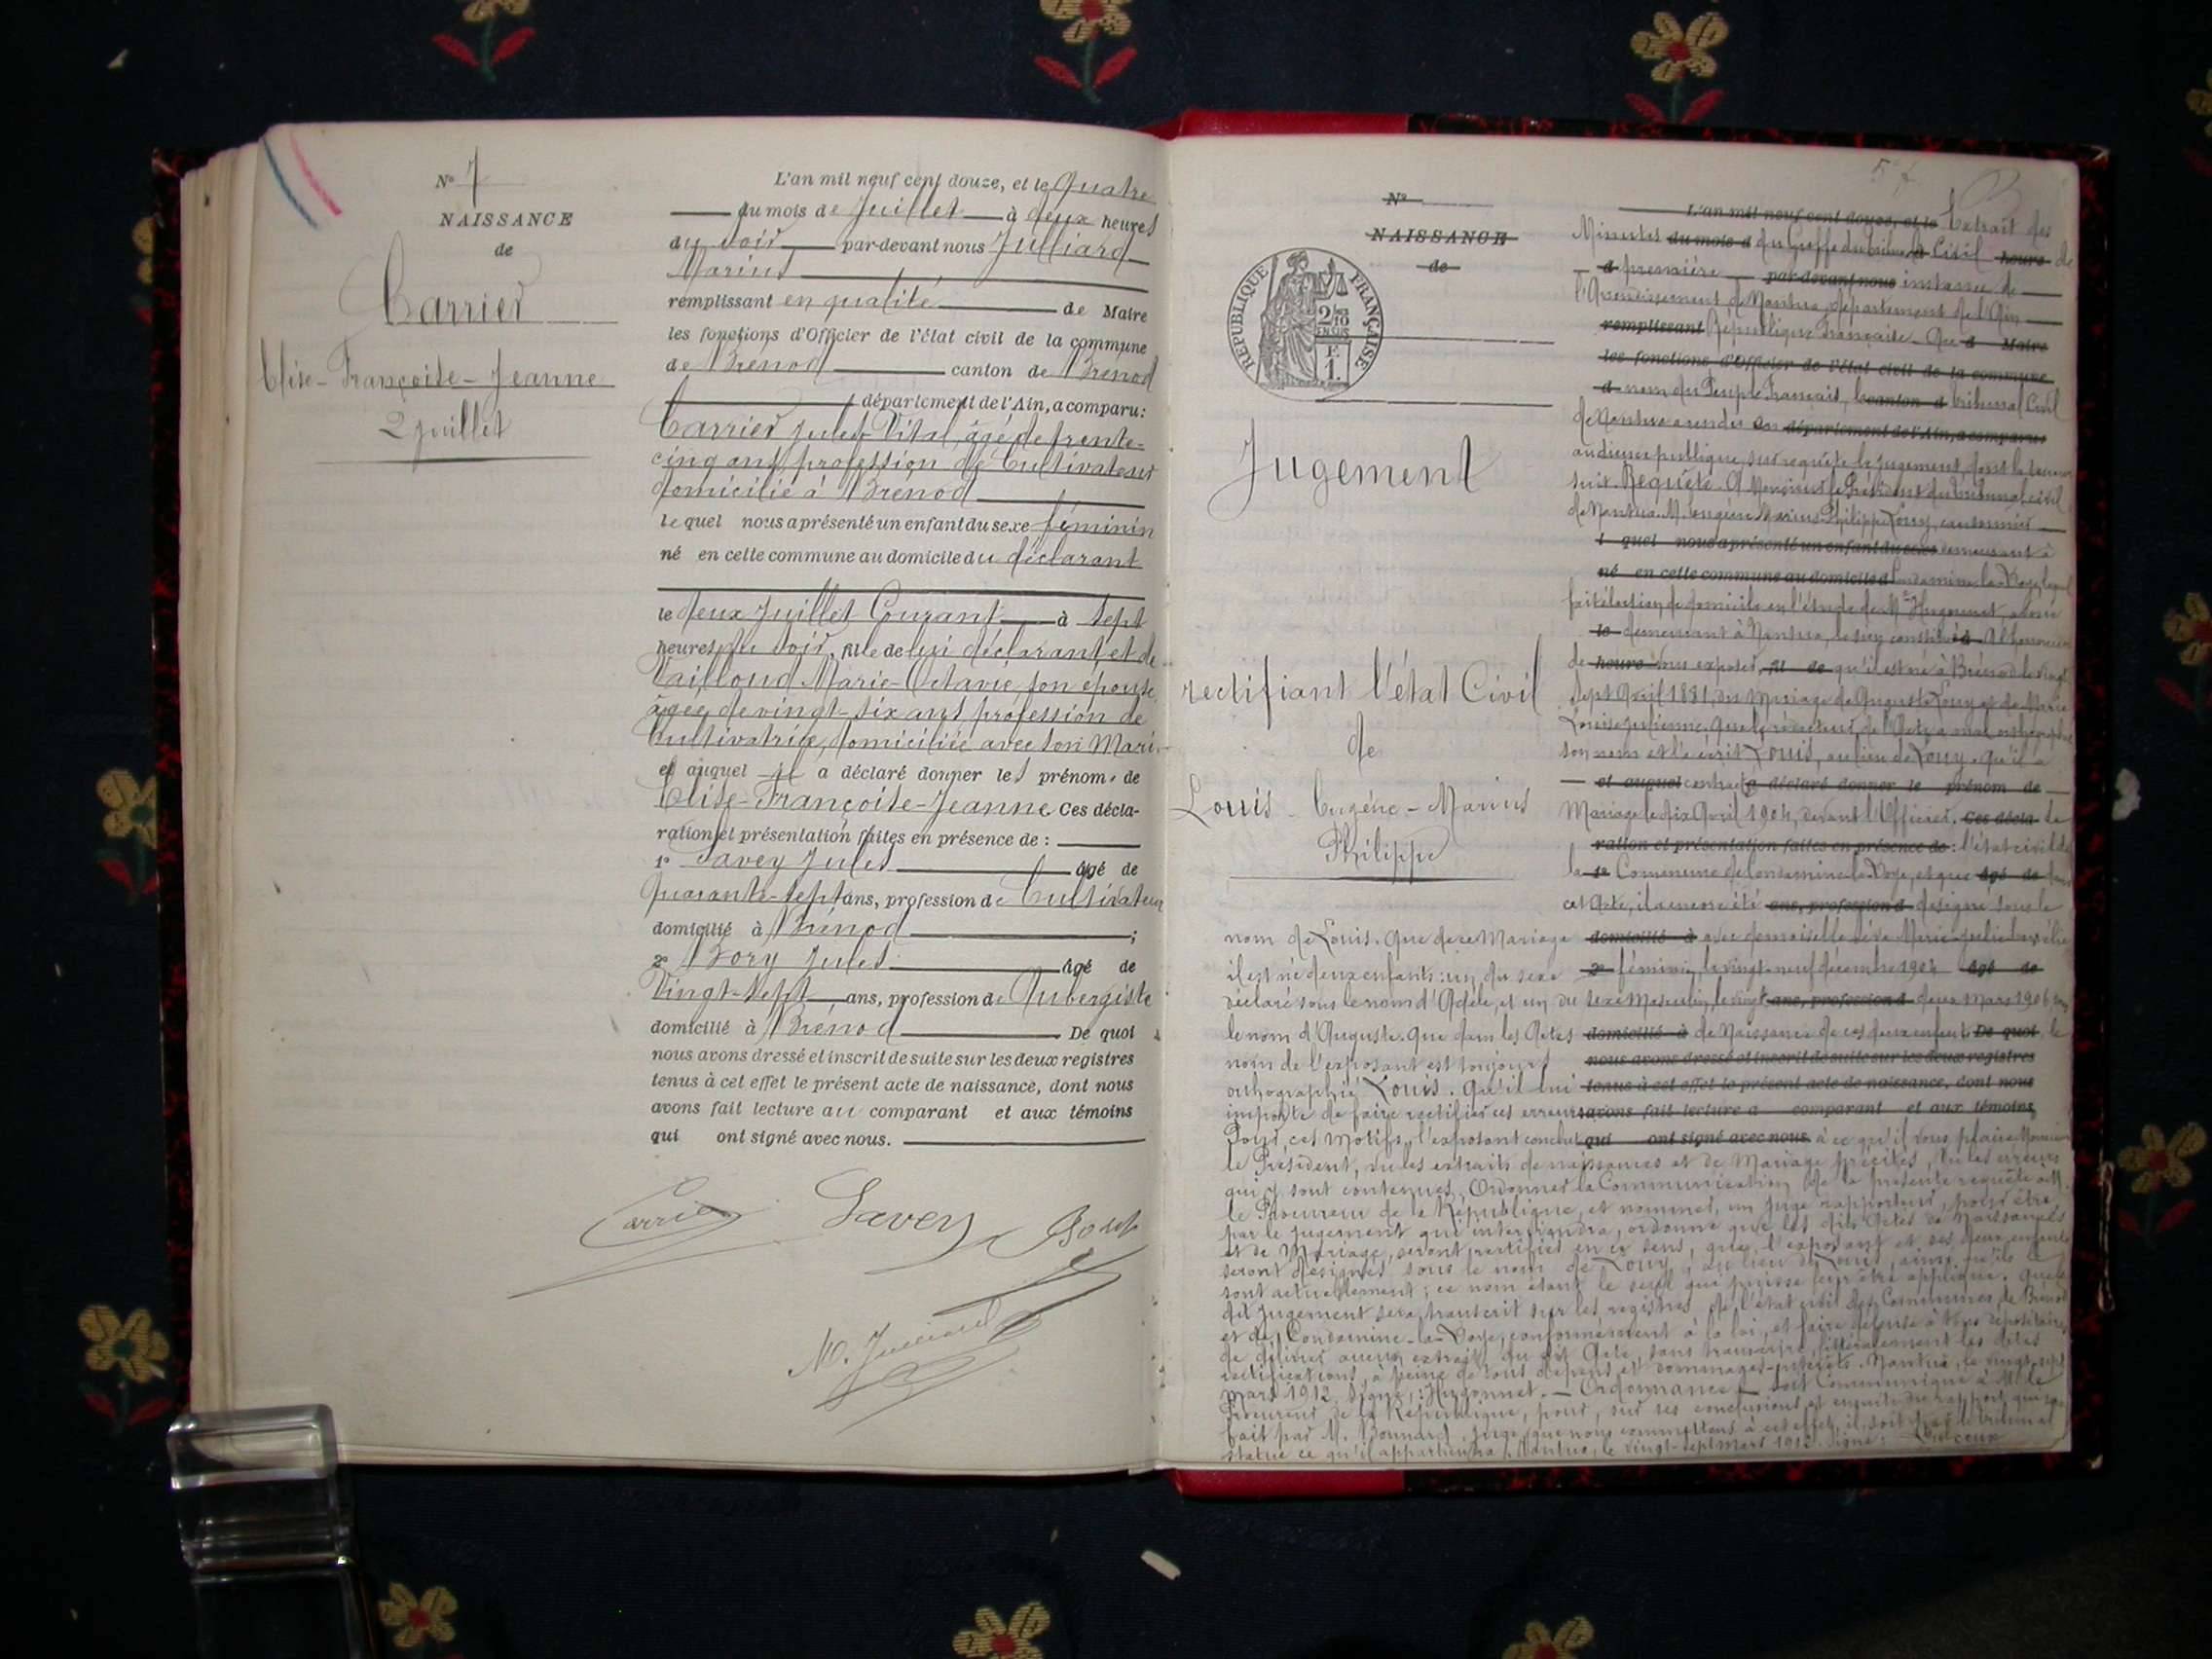 N° 7
NAISSANCE
de
Carrier
Elise-Françoise-Jeanne
2 juillet
L'an mil neuf cent douze, et le Quatre
du mois de Juillet à deux heures
du soir par-devant nous Julliard
Marius
remplissant en qualité de Maire
les fonctions d'Officier de l'état civil de la commune
de Brénod canton de Brénod
département de l'Ain, a comparu:
Carrier Jules-Vital, âgé de trente-
cinq ans, profession de Cultivateur
domicilié à Brénod
le quel nous a présenté un enfant du sexe féminin
né en cette commune au domicile du déclarant
le deux Juillet Courant à Sept
heures du soir, fille de lui déclarant, et de
Vailloud Marie-Octavie, son épouse
âgée de vingt-six ans profession de
Cultivatrice, domiciliée avec son Mari.
et auquel il a déclaré donner les prénoms de
Elise-Françoise-Jeanne Ces décla-
ration et présentation faites en présence de :
1° Savey Jules âgé de
Quarante-sept ans, profession de Cultivateur
domicilié à Brénod ;
2° Bory Jules âgé de
Vingt-sept ans, profession de Aubergiste
domicilié à Brénod De quoi
nous avons dressé et inscrit de suite sur les deux registres
tenus à cet effet le présent acte de naissance, dont nous
avons fait lecture au comparant et aux témoins
qui ont signé avec nous.
Carrier Savey
M. Julliard
57
N°
NAISSANCE
de
REPUBLIQUE FRANÇAISE
2/10 EN SUS
F.
1.
Jugement
rectifiant l'état Civil
de
Louis - Eugène - Marius
Philippe
L'an mil neuf cent douze, et le Extrait des
Minutes du mois d du Greffe du Civil heure de
d première par-devant nous instance de
l'Arrondissement de Nantua, département de l'Ain
remplissant République Française - Au d Maire
les fonctions d'Officier de l'état civil de la commune
d nom du Peuple Français, le canton d tribunal Civil
de Nantua a rendu en département de l'Ain, a comparu
audience publique, sur requête le jugement, dont la teneur
suit. Requête. A Monsieur le Président du tribunal civil
de Nantua. M. Eugène Marius Philippe Louy, cantonnier
l quel nous a présenté un enfant du sexe demeurant à
né en cette commune au domicile d Condamine-la-Doye, lequel
fait élection de domicile en l'étude de Me Hugonnet, avoué
le demeurant à Nantua, A l'honneur
de heure vous exposer, fil de qu'il est né à Brénod le vingt
sept Avril 1881, du Mariage de Auguste Louy et de Marie
Louise Julienne. Que le rédacteur de l'Acte a mal orthographié
son nom et l'a écrit Louis, au lieu de Louy. Qu'il a
et auquel contracté a déclaré donner le prénom de
Mariage le dix Avril 1904, devant l'Officier. Ces décla de
ration et présentation faites en présence de : l'état civil de
la 1° Commune de Condamine-la-Doye, et que âgé de dans
cet Acte, il a encore été ans, profession d désigné sous le
nom de Louis. Que de ce Mariage domicilié à avec demoiselle
il est né deux enfants : un du sexe 2° féminin, le vingt-neuf décembre 1904 âgé de
déclaré sous le nom d'Adèle, et un du sexe Masculin, le vingt ans, profession d deux Mars 1906 sous
le nom d'Auguste. Que dans les Actes domicilié à de Naissance de ces deux enfants De quoi le
nom de l'exposant est toujours nous avons dressé et inscrit de suite sur les deux registres
orthographié Louis. Qu'il lui tenus à cet effet le présent acte de naissance, dont nous
importe de faire rectifier ces erreurs avons fait lecture a comparant et aux témoins
Pour ces Motifs, l'exposant conclut qui ont signé avec nous. à ce qu'il vous plaise Monsieur
le Président, vu les extraits de naissances et de Mariage précités, Vu les erreurs
qui y sont contenues, Ordonner la Communication de la présente requête à M.
le Procureur de la République, et nommer, un juge rapporteur, pour être
par le jugement qui interviendra, ordonné que les dits Actes de Naissances
et de Mariage, seront rectifiés en ce sens, que l'exposant et ses deux enfants
seront désignés sous le nom de Louy, au lieu de Louis, ainsi qu'ils le
sont actuellement ; ce nom étant le seul qui puisse leur être appliqué. Que le
dit Jugement sera transcrit sur les registres de l'état civil des Communes de Brénod
et de Condamine-la-Doye, conformément à la loi, et faire défense à tous dépositaires
de délivrer aucun extrait du dit Acte, sans transcrire littéralement les dites
rectifications, à peine de tous dépens et dommages-intérêts. Nantua, le vingt-sept
Mars 1912. Signé : Hugonnet. — Ordonnance — Soit Communiqué à M. le
Procureur de la République, pour, sur ses conclusions et ensuite du rapport qui sera
fait par M. Bonnard, juge, que nous commettons à cet effet, il soit par le tribunal
statué ce qu'il appartiendra. Nantua, le vingt-sept Mars 1912. Signé :